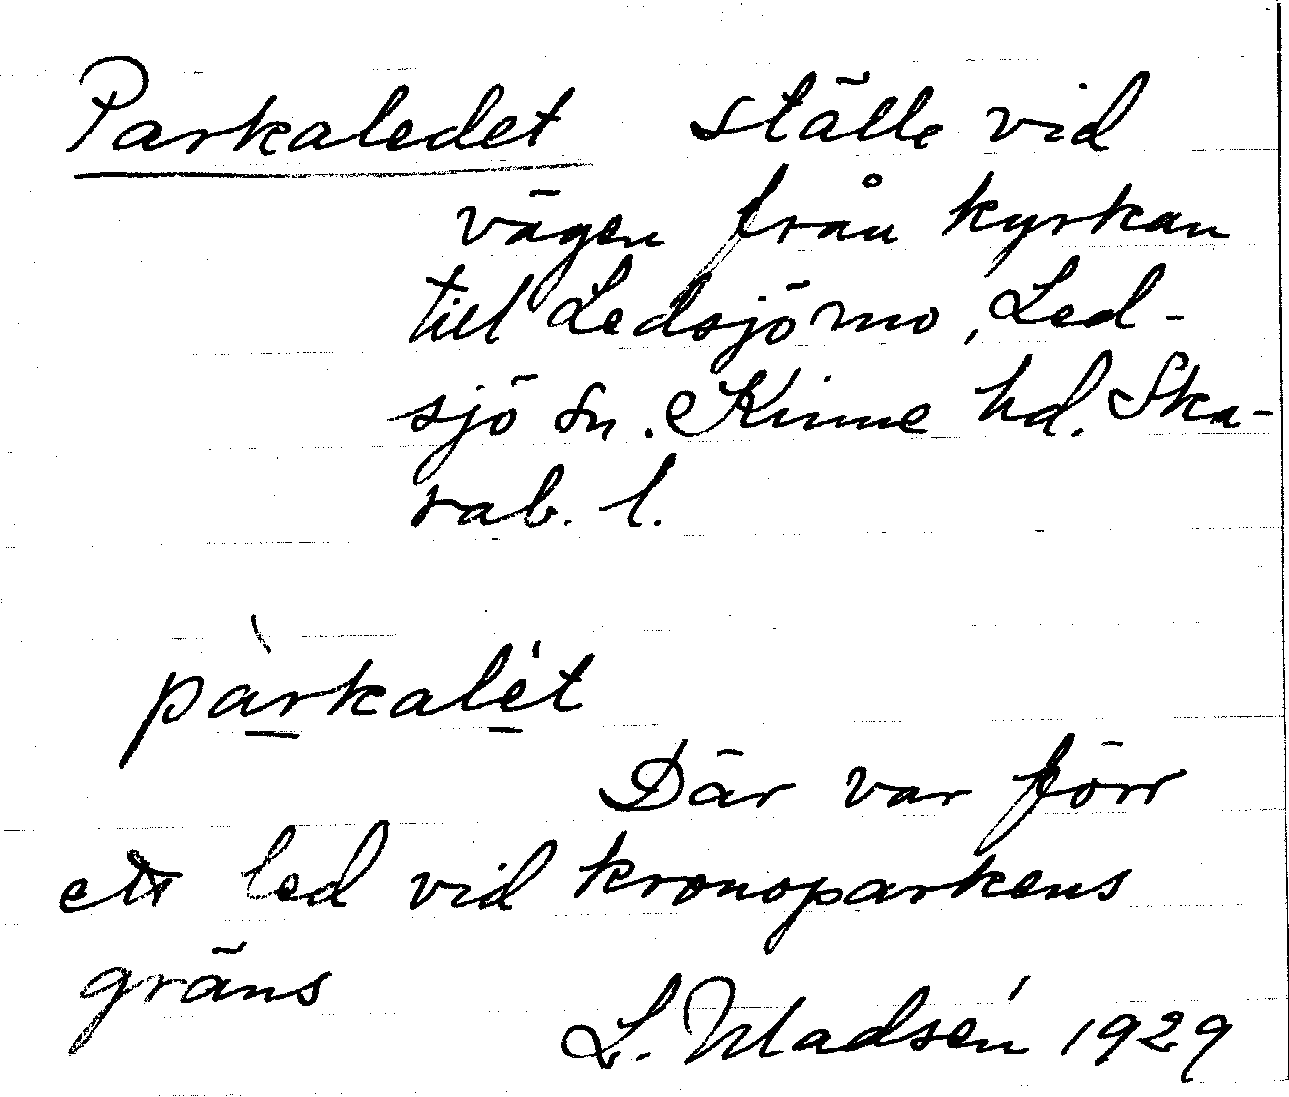 Parkaledet ställe vid
vägen från kyrkan
till Ledsjömo, Led-
sjö sn. Kinne hd. Ska-
rab. l.
pàrkalét
Där var förr
ett led vid kronoparkens
gräns
L. Madsén 1929